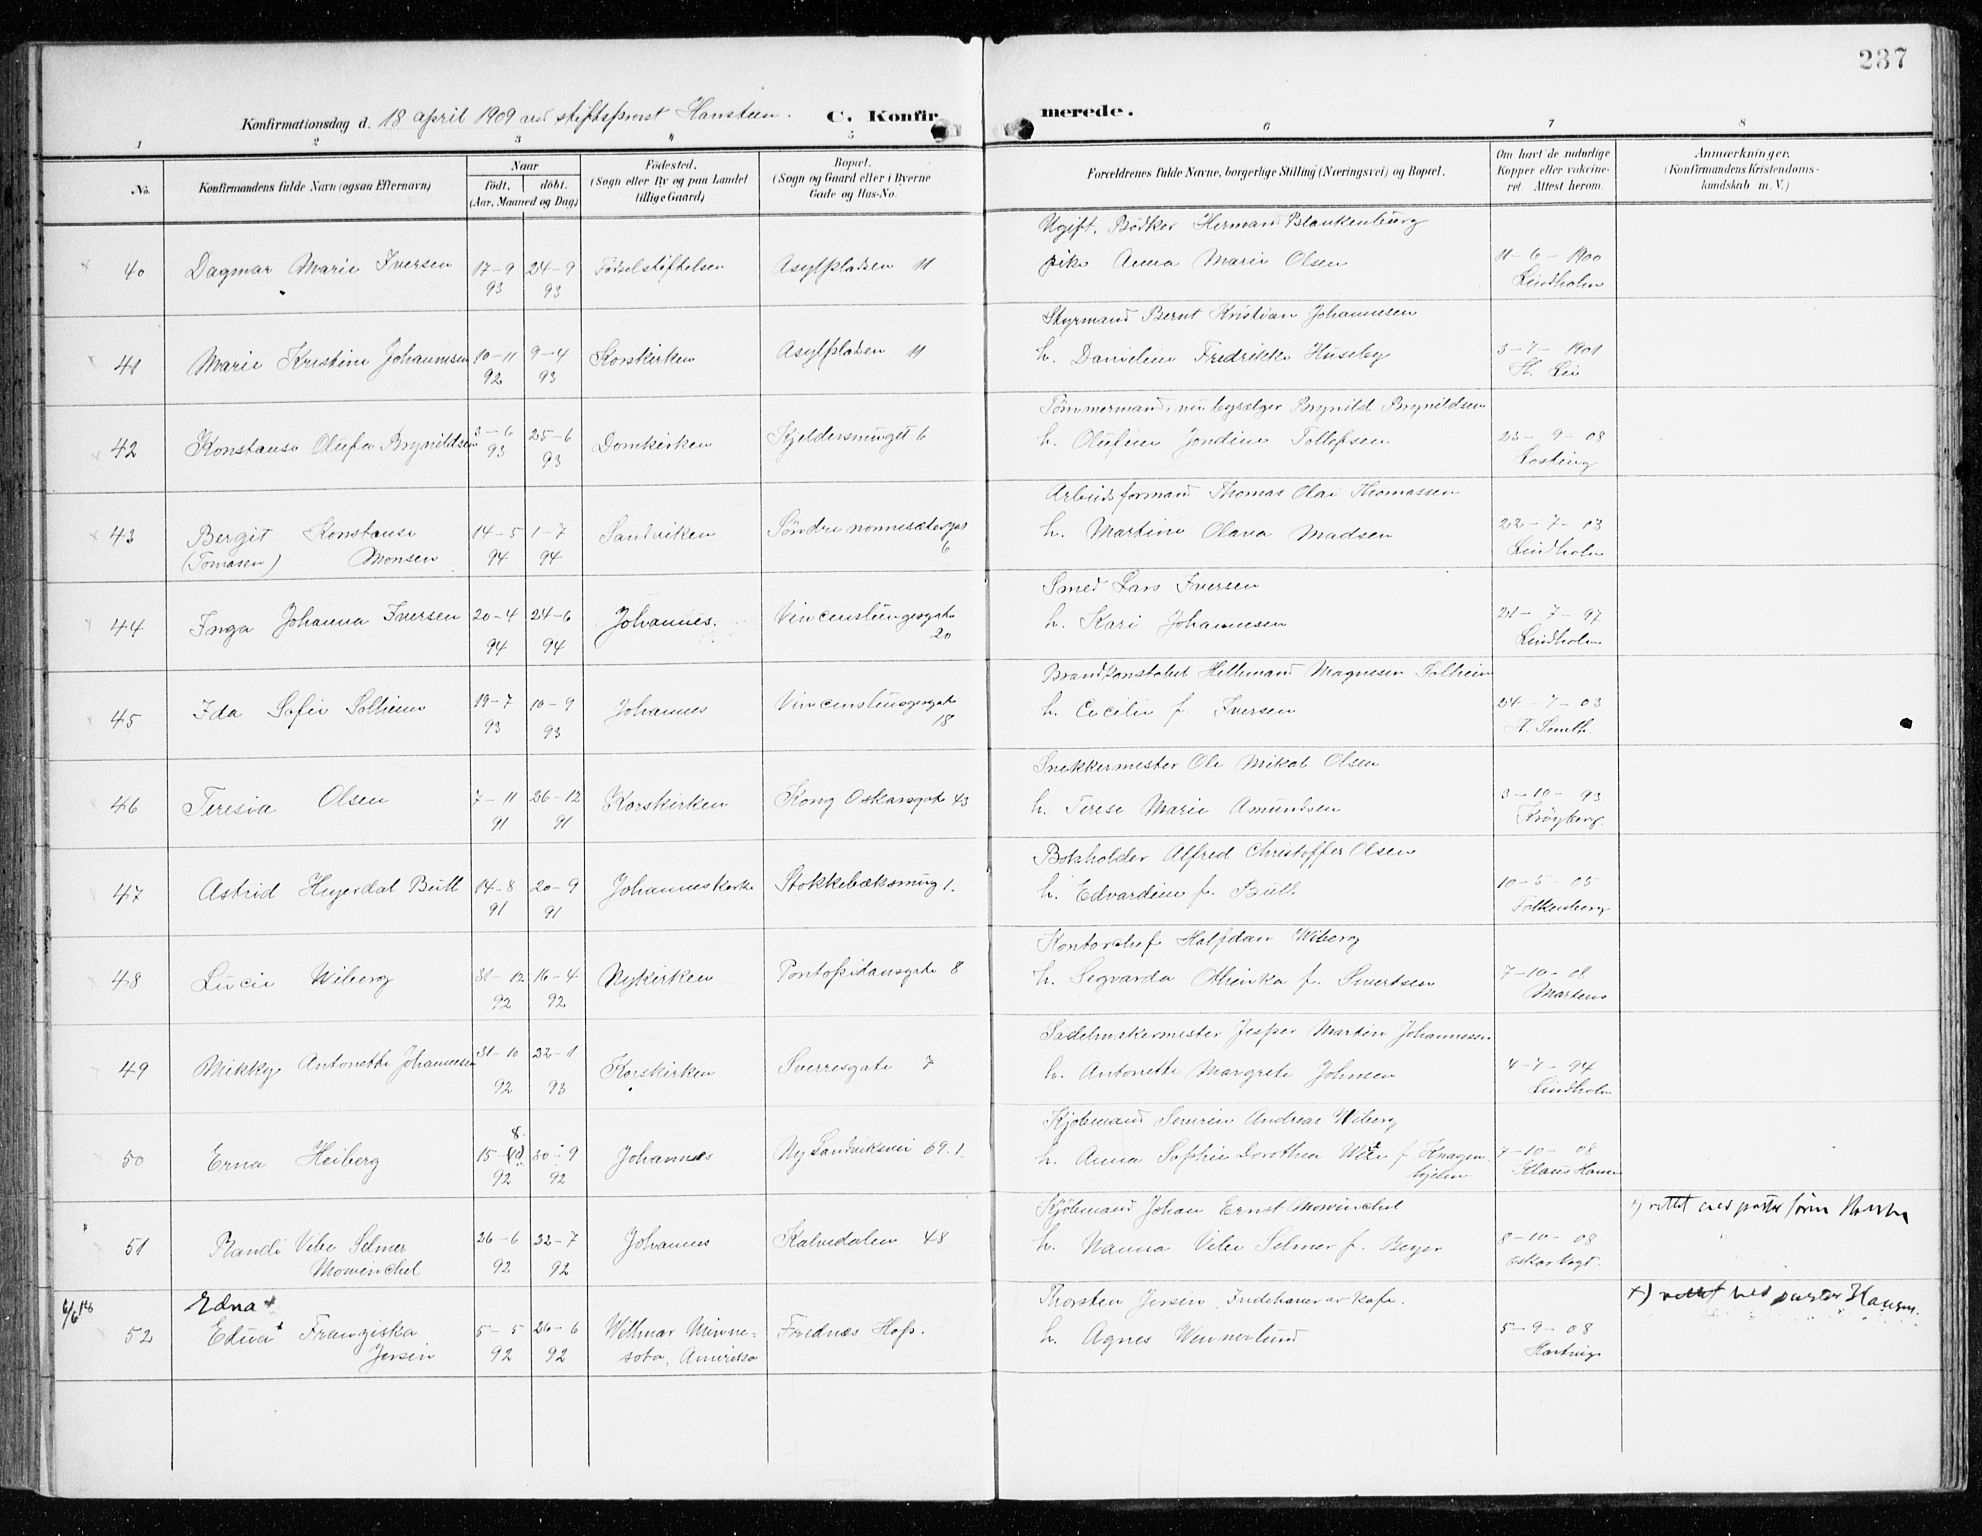 237
Konfirmationsdag d. 18 april 1909 ved stiftsprost Hansteen. C. Konfirmerede.
1 2 3 " 5 6 7 8
No. Konfirmandens fulde Navn (ogsaa Efternavn) Naar født. døbt. (Aar, Maaned og Dag) Fødested. (Sogn eller By og paa Landet tillige Gaard) Bopæl. (Sogn og Gaard eller i Byerne Gade og Hus-No. Forældrenes fulde Navne, borgerlige Stilling (Næringsvei) og Bopæl. Om havt de naturlige Kopper eller vakcineret. Attest herom. Anmærkninger. (Konfirmandens Kristendomskundskab m. V.)
Ugift. Bødker Herman Blankenburg
40 Dagmar Marie Iversen 17-9 24-9 Fødselstiftelsen Asylpladsen 11 pike Anna Marie Olsen 11-6-1900
93 93 Lindholm
Styrmand Bernt Kristian Johannesen
41 Marie Kristine Johannesen 10-11 9-4 Korskirken Asylpladsen 11 h. Danieline Fredrikke Huseby 3-7-1901
92 93 H. Lie
Tømmermand, nu bysælger Brynild Brynildsen
42 Konstanse Olufea Brynildsen 3-6 25-6 Domkirken Kjeldersmuget 6 h. Olufine Jondine Tollefsen 23-9-08
93 93
Arbeidsformand Thomas Olai Thomassen
43 Bergit Konstanse 14-5 1-7 Sandviken Søndre nonnesætergat h. Martine Olava Madsen 22-7-03
(Tomasen) Monsen 94 94 6 Lindholm
Smed Lars Iversen
44 Inga Johanna Iversen 20-4 24-6 Johannes. Vincenslungesgate h. Kari Johannesen 21-7-97
94 94 20 Lindholm
Brandkonstabel Hillemand Magnesen Solheim
45 Ida Sofie Solheim 19-7 10-9 Johannes Vincenslungesgate h. Cecilie f. Iversen 24-7-03
93 93 18 H. Smith.
Snekkermester Ole Mikal Olsen
46 Teresia Olsen 7-11 26-12 Korskirken Kong Oskarsgate 43 h. Terese Marie Amundsen 3-10-93
91 91 Krøyberg.
Bokholder Alfred Christoffer Olsen
47 Astrid Heyerdal Bull 14-8 20-9 Johanneskirke Stokkebæksmug 1. h. Edvardine f. Bull. 10-5-05
91 91 Falkenberg
Kontorchef Halfdan Wiberg
48 Lucie Wiberg 31-12 16-4 Nykirken Pontoppidansgate 8 h. Segvarda Othenka f. Sivertsen 7-10-08
92 92 Martens
Sadelmakermester Jesper Martin Johannesen
49 Mikky Antonette Johannesen 31-10 22-1 Korskirken Sverresgate 7 h. Antonette Margrete Johnsen 4-7-94
92 93 Lindholm
8. Kjøbmand Severin Andreas Wiberg
50 Erna Heiberg 15- 30-9 Johannes Ny Sandviksvei 69.1. h. Anna Sophie Dorothea f. Knagenhjelm 7-10-08
92 92 Klaus Hansen
Kjøbmand Johan Ernst Mowinckel
51 Randi Vibe Selmer 26-6 22-7 Johannes Kalvedalen 48 h. Nanna Vibe Selmer f. Beyer 8-10-08
Mowinckel 92 92 Oskar Vogt.
6/6 18 Edna x Thorsten Jersin, Indehaver av Kafe. x) rettet ved pastor Hansen.
52 Edua x Franziska 5-5 26-6 Willmar Minne- Frednæs Hop. h. Agnes Wennerlund 5-9-08
Jersin 92 92 sota, Amerika Hartvig